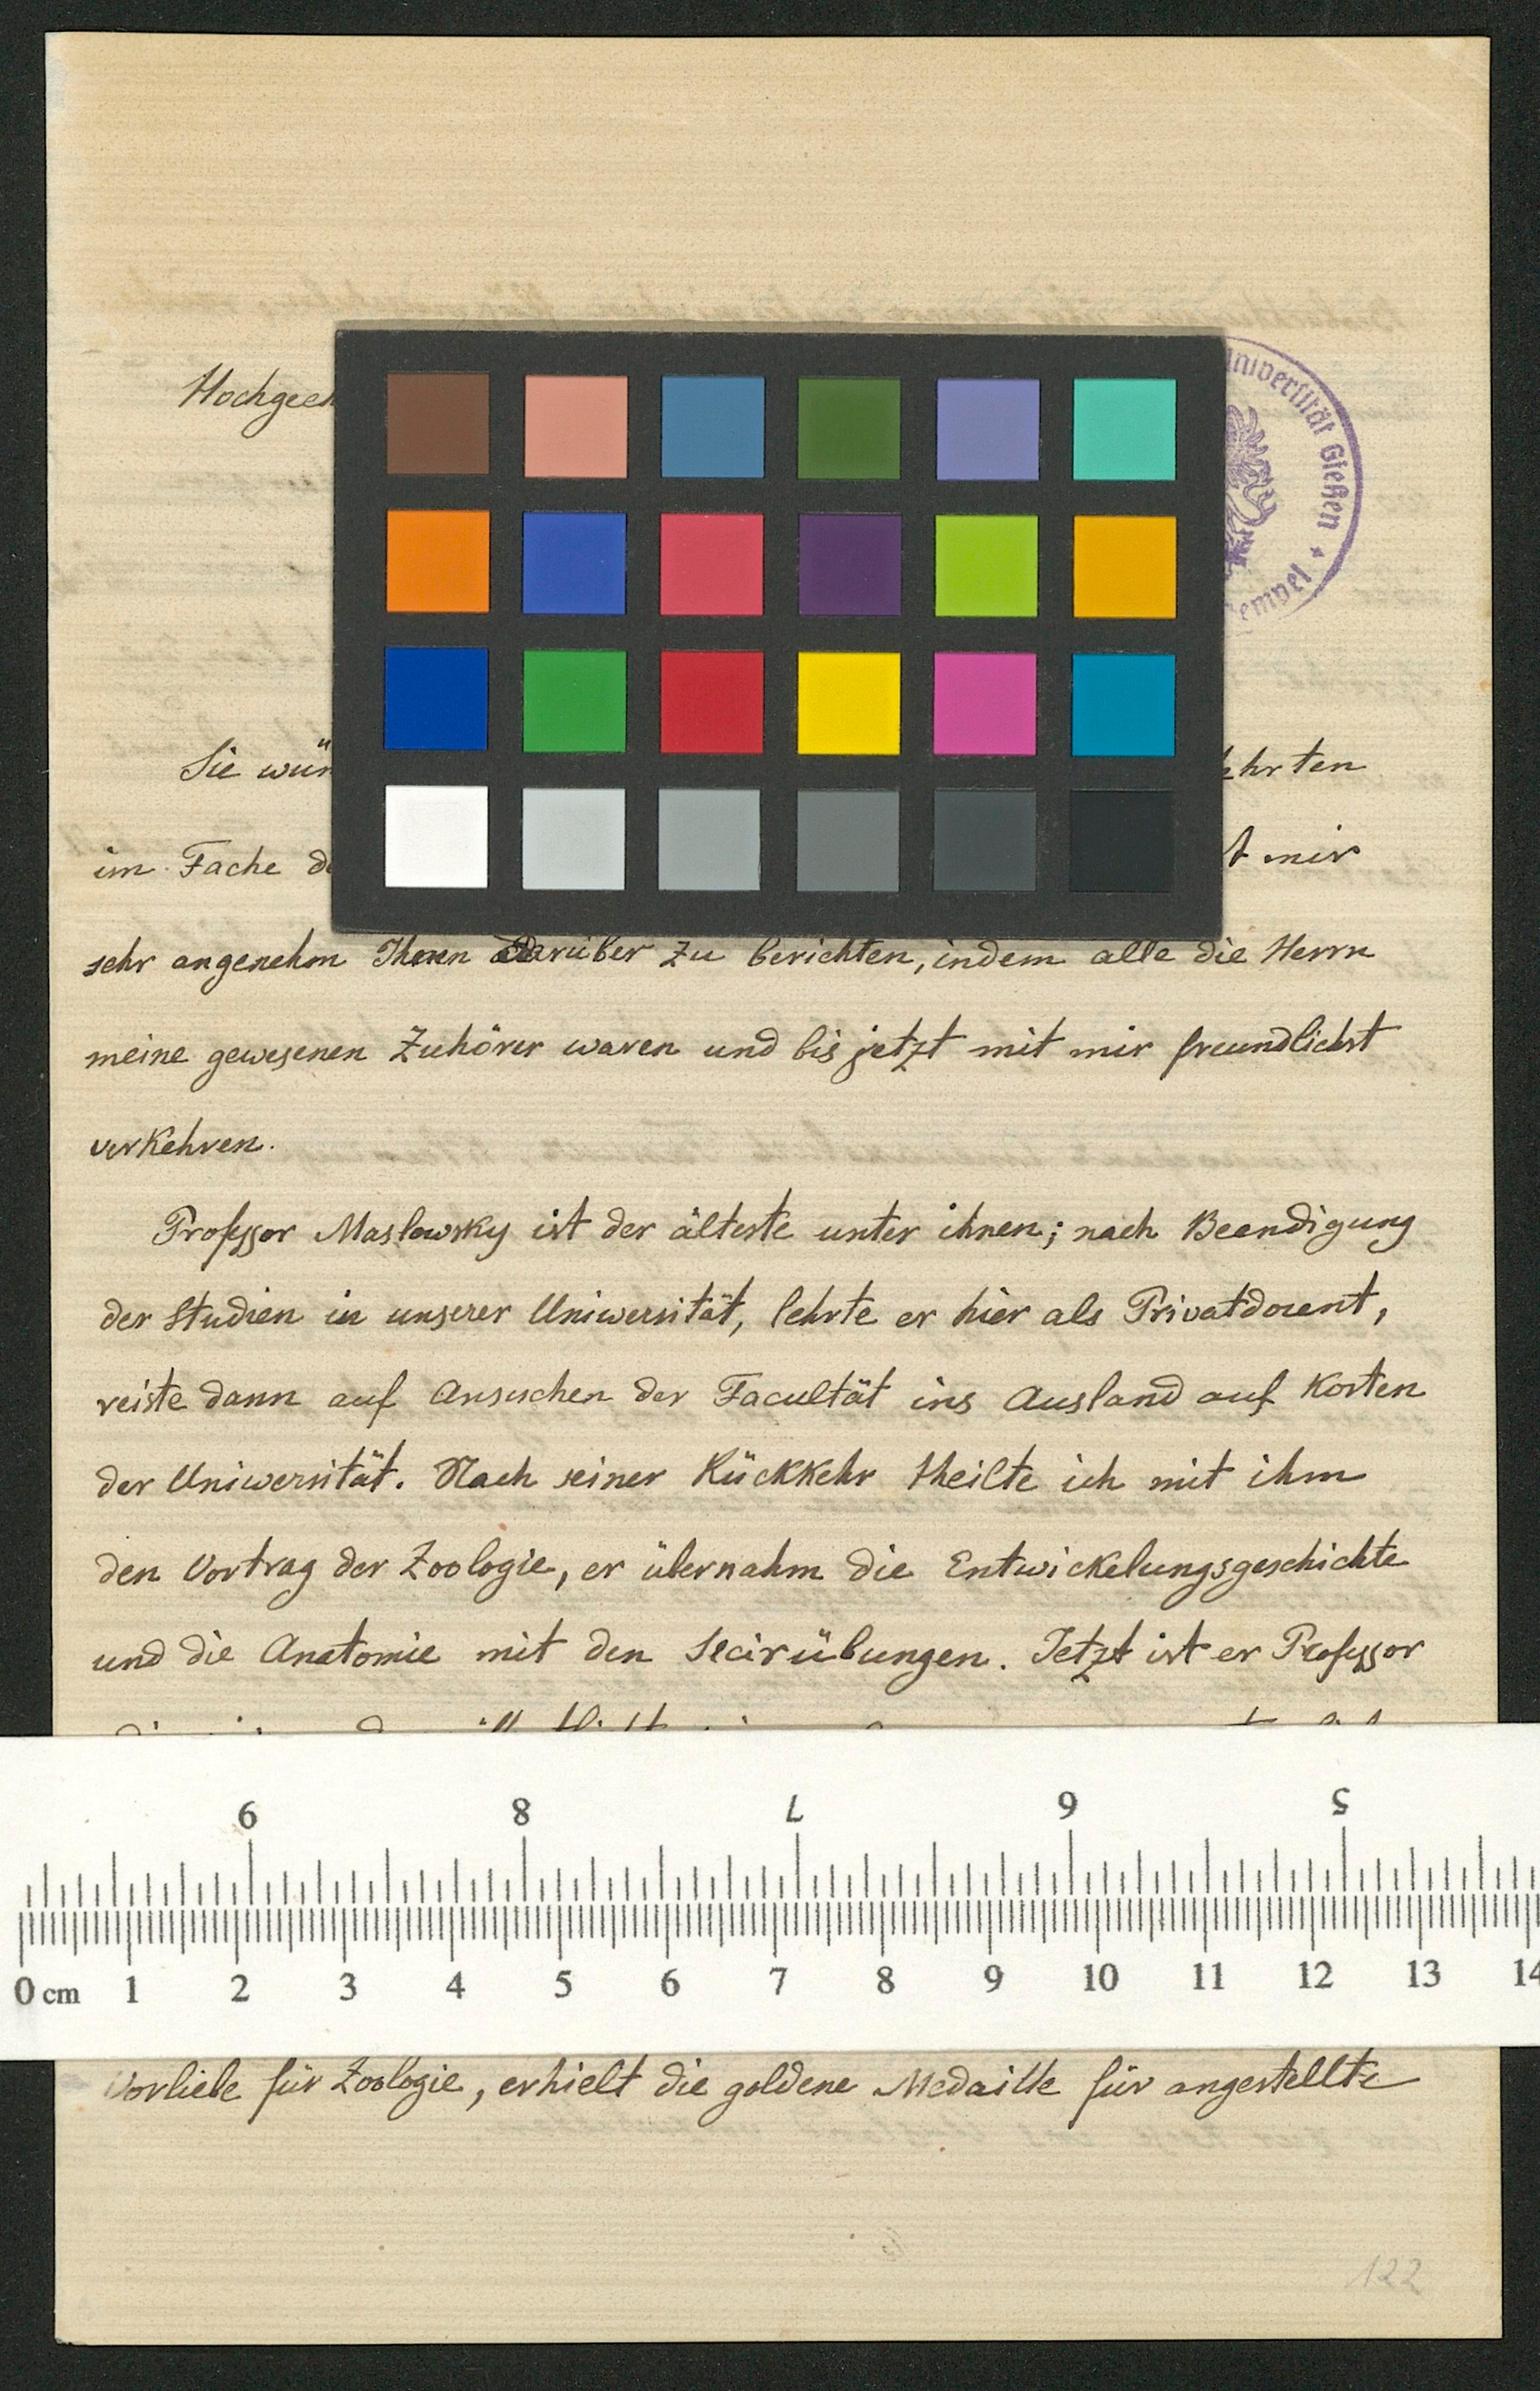 Hochgeeh
Universität Gießen
empel
Sie wün
ehrten
im Fache de
t mir
sehr angenehm Ihnen darüber zu berichten, indem alle die Herrn
meine gewesenen Zuhörer waren und bis jetzt mit mir freundlichst
verkehren.
Professor Maslowsky ist der älteste unter ihnen; nach Beendigung
der Studien in unserer Uniwersität, lehrte er hier als Privatdocent,
reiste dann auf Ansuchen der Facultät ins Ausland auf Kosten
der Uniwersität. Nach seiner Rückkehr theilte ich mit ihm
den Vortrag der Zoologie, er übernahm die Entwickelungsgeschichte
und die Anatomie mit den Secirübungen. Jetzt ist er Professor
9 8 7 6 5
0 cm 1 2 3 4 5 6 7 8 9 10 11 12 13 14
Vorliebe für Zoologie, erhielt die goldene Medaille für angestellte
122